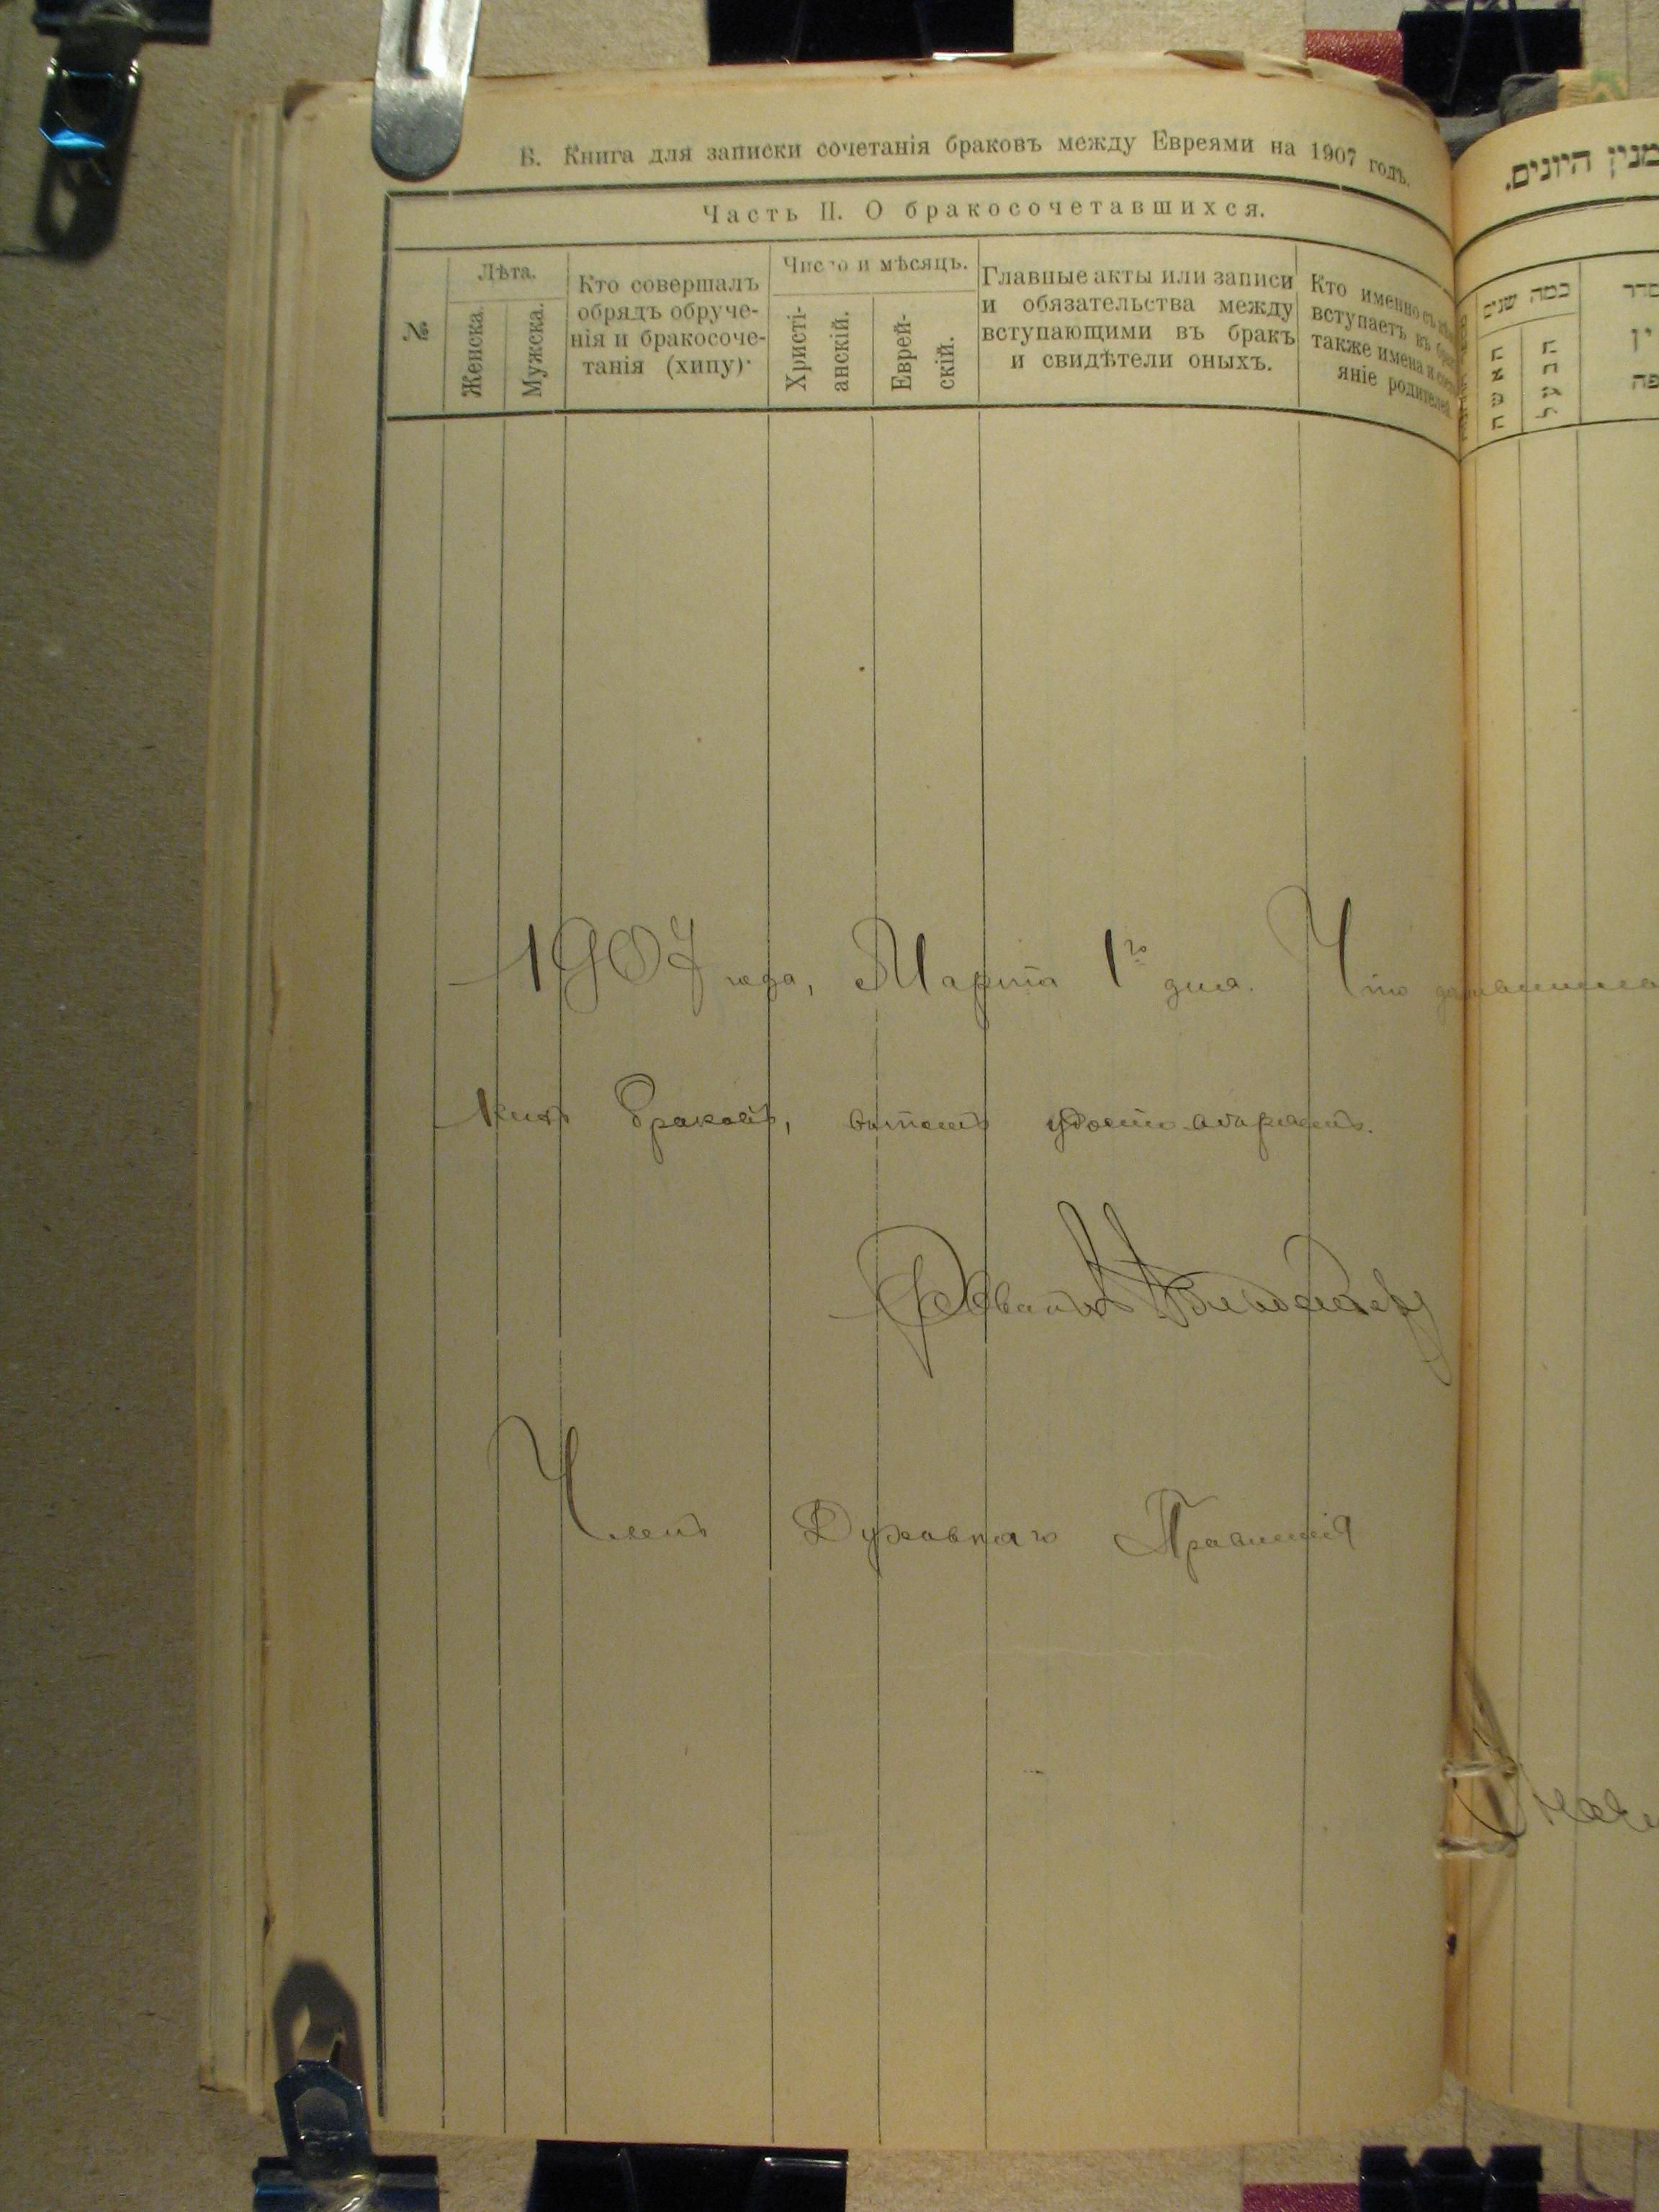 В. Книга для записки сочетанія браковъ между Евреями на 1907 годъ.
Часть II. О бракосочетавшихся.
№
Лѣта.
Женска.
Мужска.
Кто совершалъ
обрядъ обруче-
нія и бракосоче-
танія (хипу)
Число и мѣсяцъ.
Христі-
анскій.
Еврей-
скій.
Главные акты или записи
и обязательства между
вступающими въ бракъ
и свидѣтели оныхъ.
Кто именно съ кѣмъ
вступаетъ въ бракъ
также имена и состо-
яніе родителей
1907 года, Марта 1го дня. Что
браковъ, въ томъ удостовѣряемъ.
Членъ Духовнаго Правленія
מנין היונים.
כמה שנים
האשה
הבעל